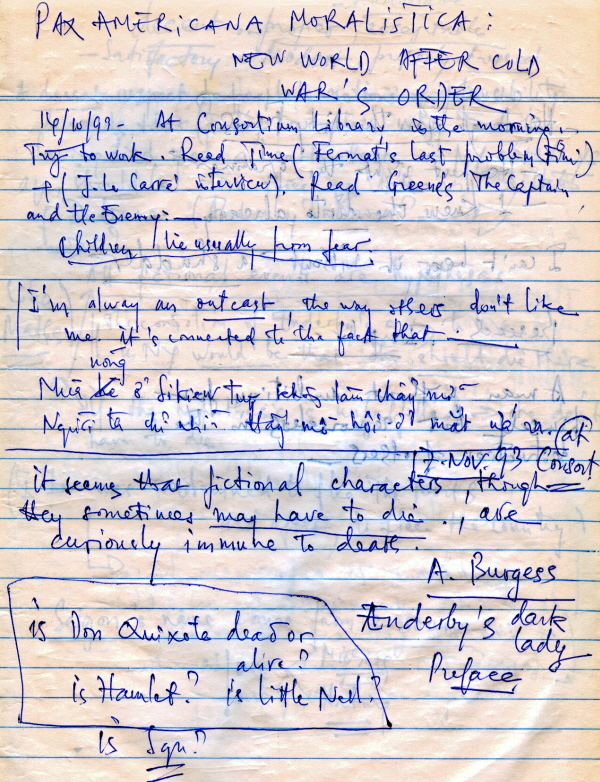 PAX AMERICANA MORALISTICA:
NEW WORLD AFTER COLD
WAR'S ORDER
At Consortium Library in the morning.
Try to work. Read Time (Fermat's last problem
+ (J. Le Carré interview). Read Greene's The Captain
and the Enemy: —
Children / lie usually from fear.
I'm alway an outcast, the way others don't like
me. it's connected to the fact that —
nóng
Mùa ở
Người ta chỉ nhìn thấy mồ hôi ở mặt
at
17. Nov. 93 Consort
it seems that fictional characters, though
they sometimes may have to die., are
curiously immune to death.
A. Burgess
Enderby's dark
lady
Preface
is Don Quixote dead or
alive?
is Hamlet? is little Nell?
is Sgn?